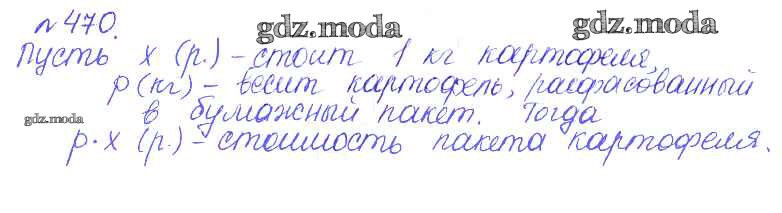 №470.
gdz.moda gdz.moda
Пусть x (р.) - стоит 1 кг картофеля,
p (кг) - весит картофель, расфасованный
в бумажный пакет. Тогда
gdz.moda
p·x (р.) - стоимость пакета картофеля.